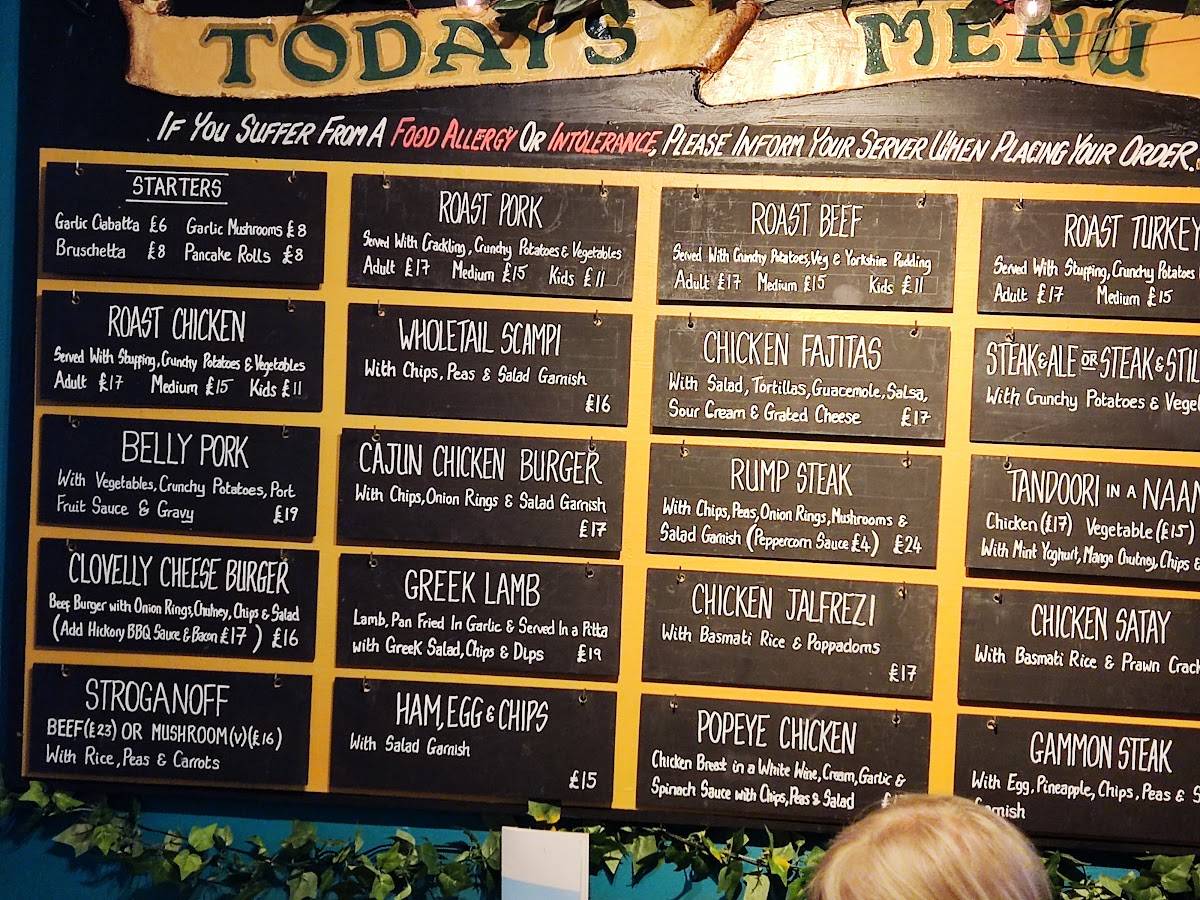 TODAY'S MENU
IF YOU SUFFER FROM A FOOD ALLERGY OR INTOLERANCE, PLEASE INFORM YOUR SERVER WHEN PLACING YOUR ORDER.
STARTERS
Garlic Ciabatta £6 Garlic Mushrooms £8
Bruschetta £8 Pancake Rolls £8
ROAST PORK
Served With Crackling, Crunchy Potatoes & Vegetables
Adult £17 Medium £15 Kids £11
ROAST BEEF
Served With Crunchy Potatoes, Veg & Yorkshire Pudding
Adult £17 Medium £15 Kids £11
ROAST TURKEY
Served With Stuffing, Crunchy Potatoes
Adult £17 Medium £15
ROAST CHICKEN
Served With Stuffing, Crunchy Potatoes & Vegetables
Adult £17 Medium £15 Kids £11
WHOLETAIL SCAMPI
With Chips, Peas & Salad Garnish
£16
CHICKEN FAJITAS
With Salad, Tortillas, Guacemole, Salsa,
Sour Cream & Grated Cheese £17
STEAK & ALE OR STEAK & STIL
With Crunchy Potatoes & Veget
BELLY PORK
With Vegetables, Crunchy Potatoes, Port
Fruit Sauce & Gravy £19
CAJUN CHICKEN BURGER
With Chips, Onion Rings & Salad Garnish
£17
RUMP STEAK
With Chips, Peas, Onion Rings, Mushrooms &
Salad Garnish (Peppercorn Sauce £4) £24
TANDOORI IN A NAAN
Chicken (£17) Vegetable (£15)
With Mint Yoghurt, Mango Chutney, Chips &
CLOVELLY CHEESE BURGER
Beef Burger with Onion Rings, Chutney, Chips & Salad
(Add Hickory BBQ Sauce & Bacon £17) £16
GREEK LAMB
Lamb, Pan Fried In Garlic & Served In a Pitta
with Greek Salad, Chips & Dips £19
CHICKEN JALFREZI
With Basmati Rice & Poppadoms
£17
CHICKEN SATAY
With Basmati Rice & Prawn Crack
STROGANOFF
BEEF (£23) OR MUSHROOM (V) (£16)
With Rice, Peas & Carrots
HAM, EGG & CHIPS
With Salad Garnish
£15
POPEYE CHICKEN
Chicken Breast in a White Wine, Cream, Garlic &
Spinach Sauce with Chips, Peas & Salad
GAMMON STEAK
With Egg, Pineapple, Chips, Peas & S